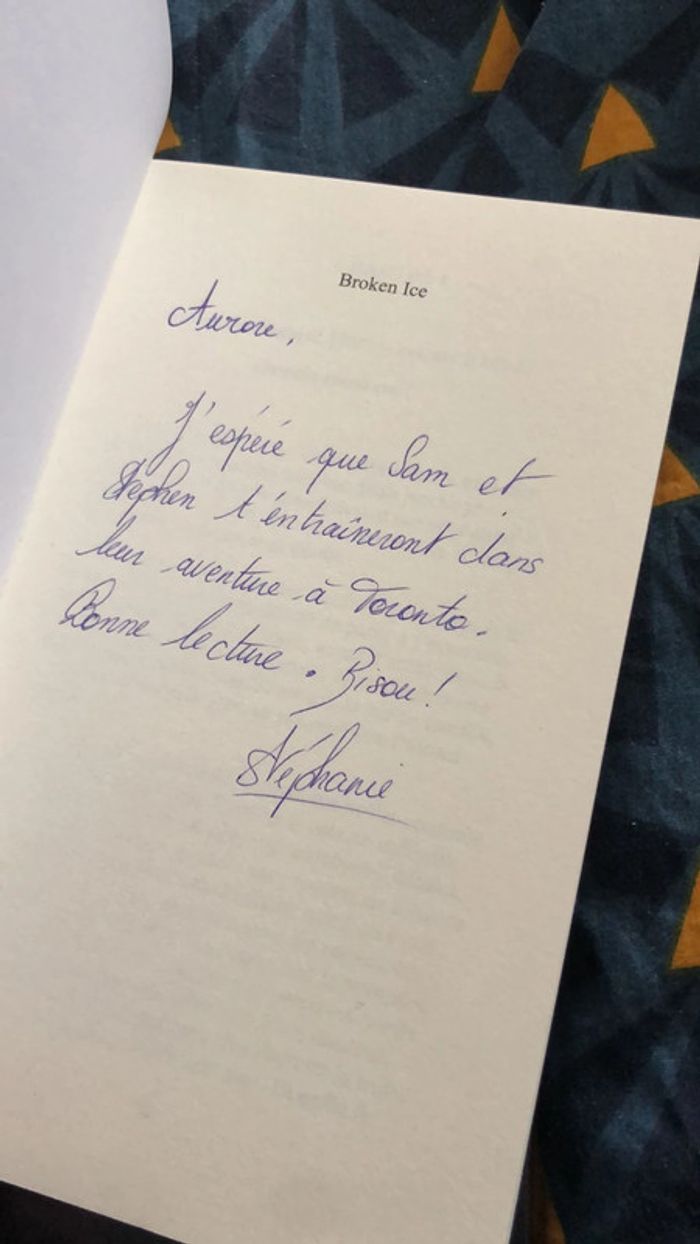 Broken Ice
Aurore,
J'espère que Sam et
Stephen t'entraîneront dans
leur aventure à Toronto.
Bonne lecture. Bisou!
Stéphanie